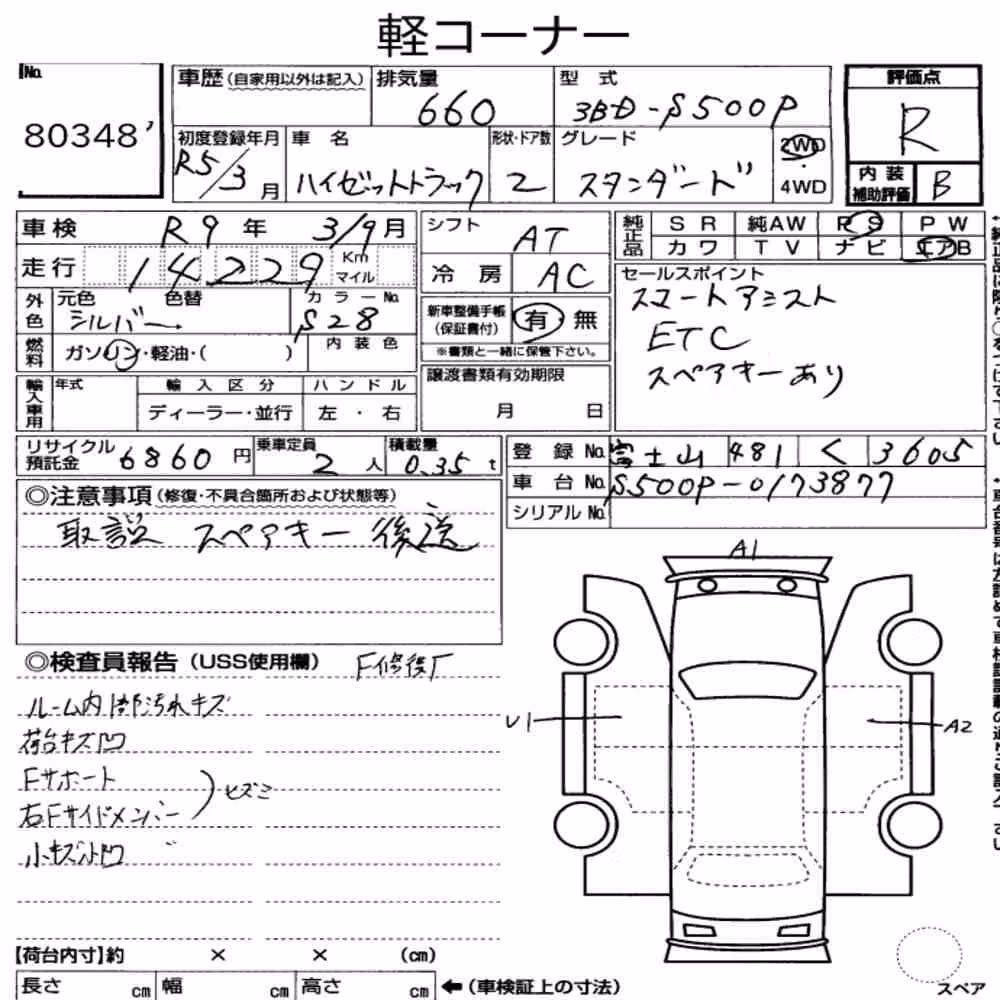 軽コーナー
No. 80348
車歴(自家用以外は記入)
排気量 660
型式 3BD-S500P
評価点 R
初度登録年月 R5/3月
車名 ハイゼットトラック
形状・ドア数 2
グレード スタンダード
2WD・4WD
内装補助評価 B
車検 R9年 3/9月
シフト AT
純正品 SR 純AW PS PW
カワ TV ナビ エアB
走行 14229 Km マイル
冷房 AC
セールスポイント
スマートアシスト
ETC
スペアキーあり
外色 元色 シルバー 色替
カラーNo. S28
新車整備手帳(保証書付) 有 無
※書類と一緒に保管下さい。
燃料 ガソリン・軽油・( )
内装色
譲渡書類有効期限
月 日
輸入車用 年式 輸入区分 ハンドル
ディーラー・並行 左・右
リサイクル預託金 6860円
乗車定員 2人
積載量 0.35t
登録No. 富士山 481 く 3605
車台No. S500P-0173877
シリアルNo.
◎注意事項(修復・不具合箇所および状態等)
取説 スペアキー 後送
◎検査員報告(USS使用欄) F修復歴
ルーム内部汚れキズ
荷台キズ凹
Fサポート
右Fサイドメンバー
ヒズミ
小キズ小凹
A1
U1
A2
【荷台内寸】約 × × (cm)
長さ cm 幅 cm 高さ cm ←(車検証上の寸法)
スペア